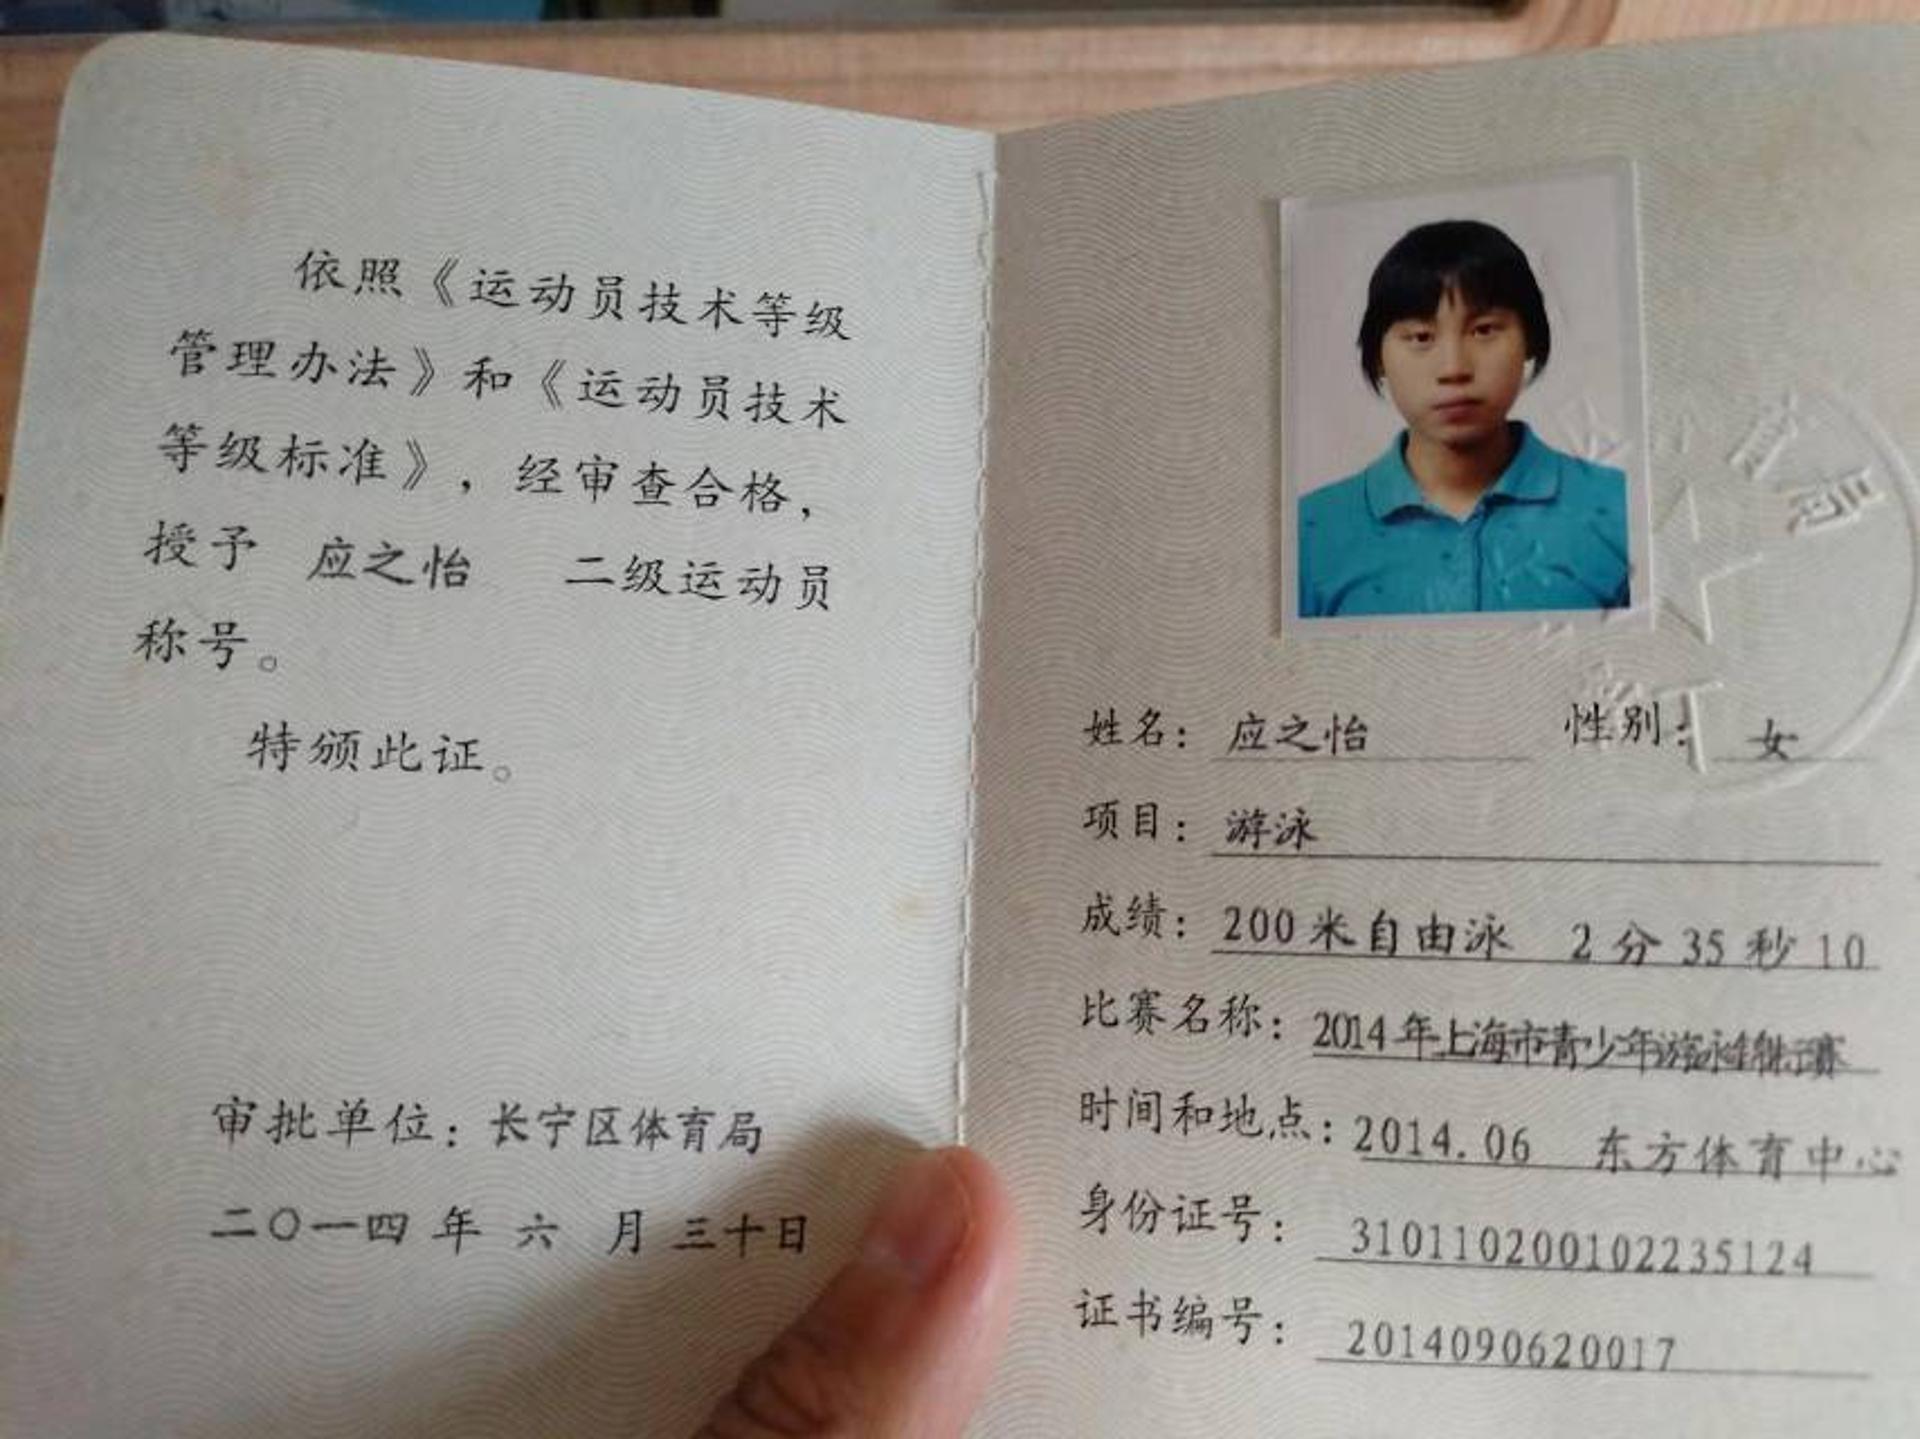 依照《运动员技术等级
管理办法》和《运动员技术
等级标准》，经审查合格，
授予 应之怡 二级运动员
称号。
特颁此证。
审批单位：长宁区体育局
二〇一四 年 六 月 三十日
姓名： 应之怡 性别： 女
项目： 游泳
成绩： 200米自由泳 2分35秒10
比赛名称： 2014年上海市青少年游泳锦标赛
时间和地点： 2014.06 东方体育中心
身份证号： 310110200102235124
证书编号： 2014090620017